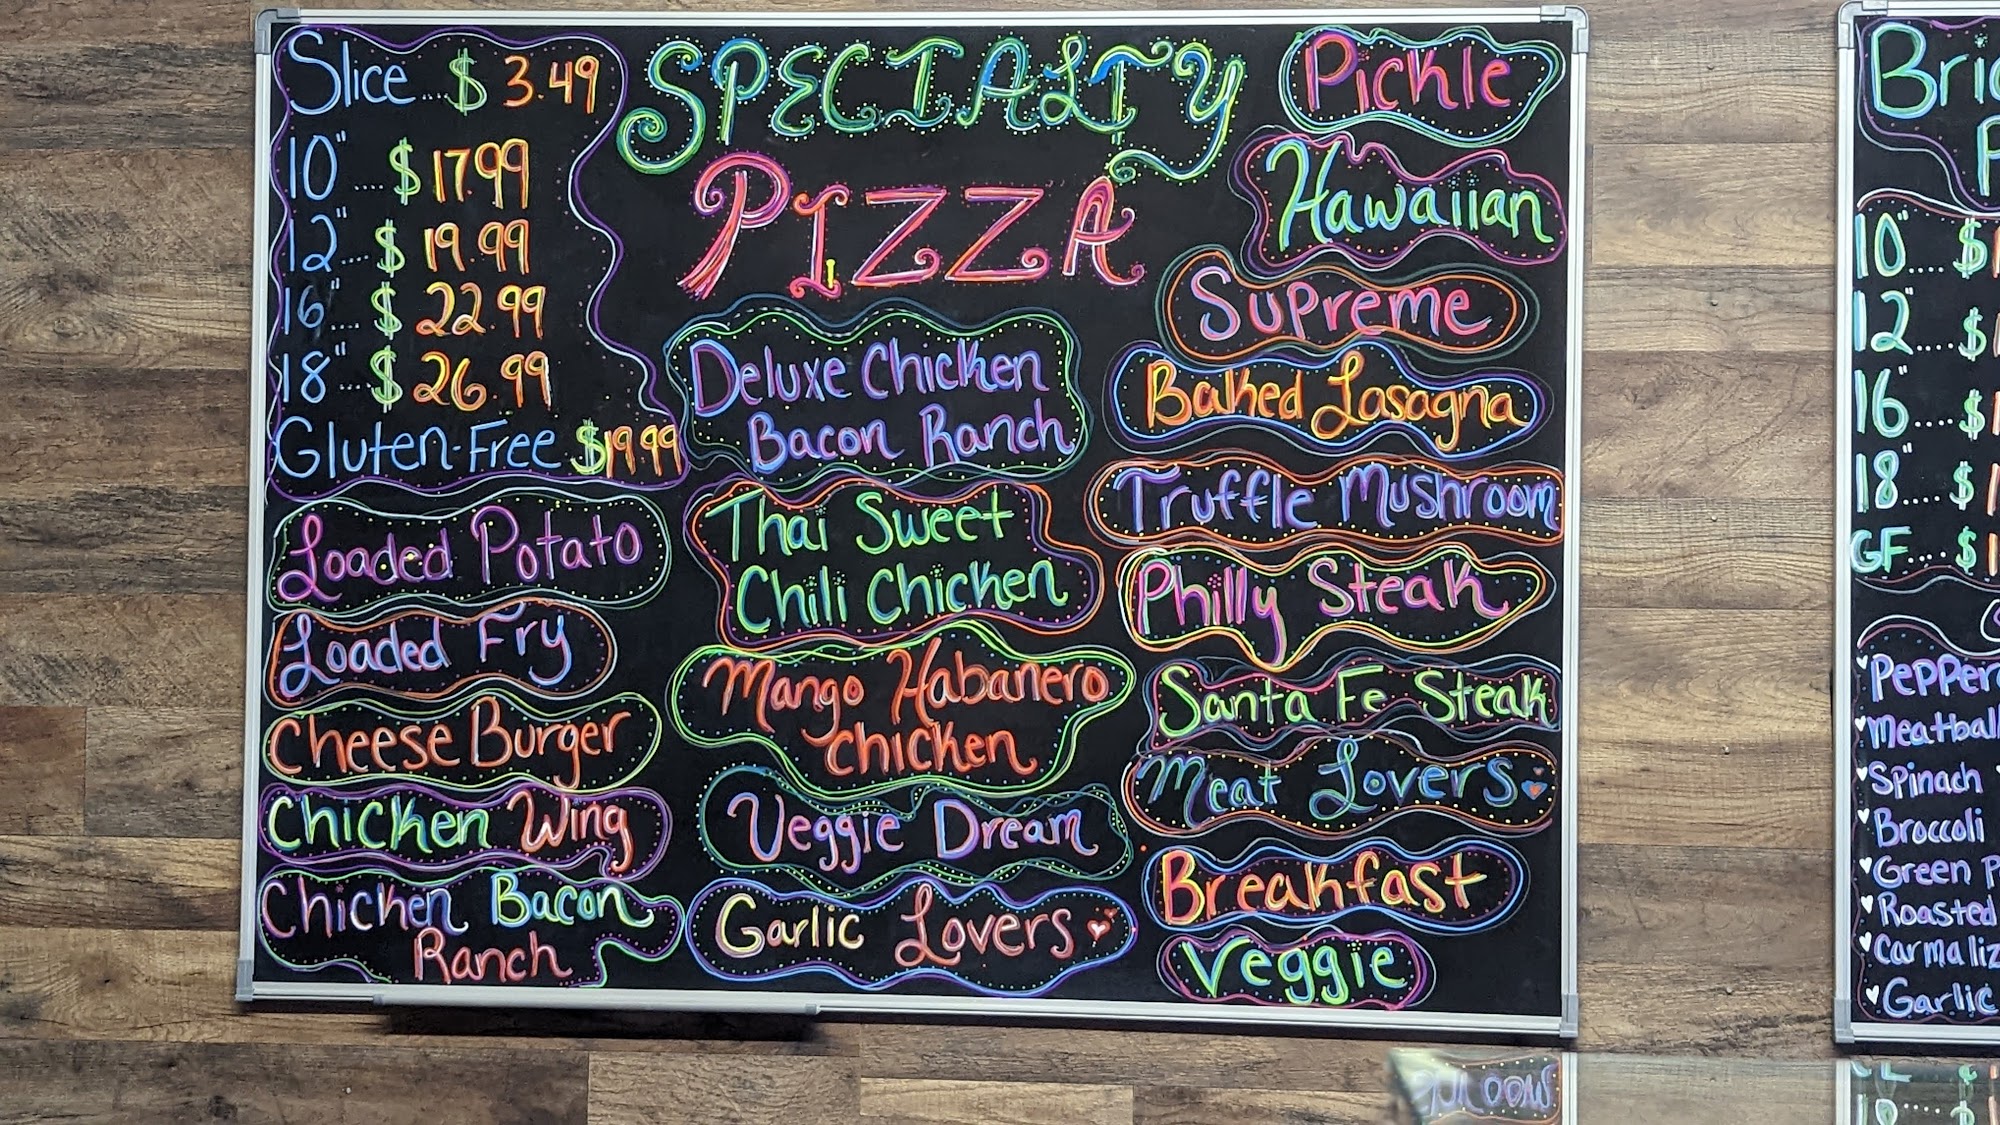 Slice....$ 3.49
10"....$ 17.99
12"...$ 19.99
16"...$ 22.99
18"...$ 26.99
Gluten-Free $19.99
Loaded Potato
Loaded Fry
Cheese Burger
Chicken Wing
Chicken Bacon
Ranch
SPECIALTY
PIZZA
Deluxe Chicken
Bacon Ranch
Thai Sweet
Chili Chicken
Mango Habanero
Chicken
Veggie Dream
Garlic Lovers
Pickle
Hawaiian
Supreme
Baked Lasagna
Truffle Mushroom
Philly Steak
Santa Fe Steak
Meat Lovers
Breakfast
Veggie
10"....$
12"....$
16"....$
18"....$
GF....$
Spinach
Broccoli
Green
Roasted
Garlic